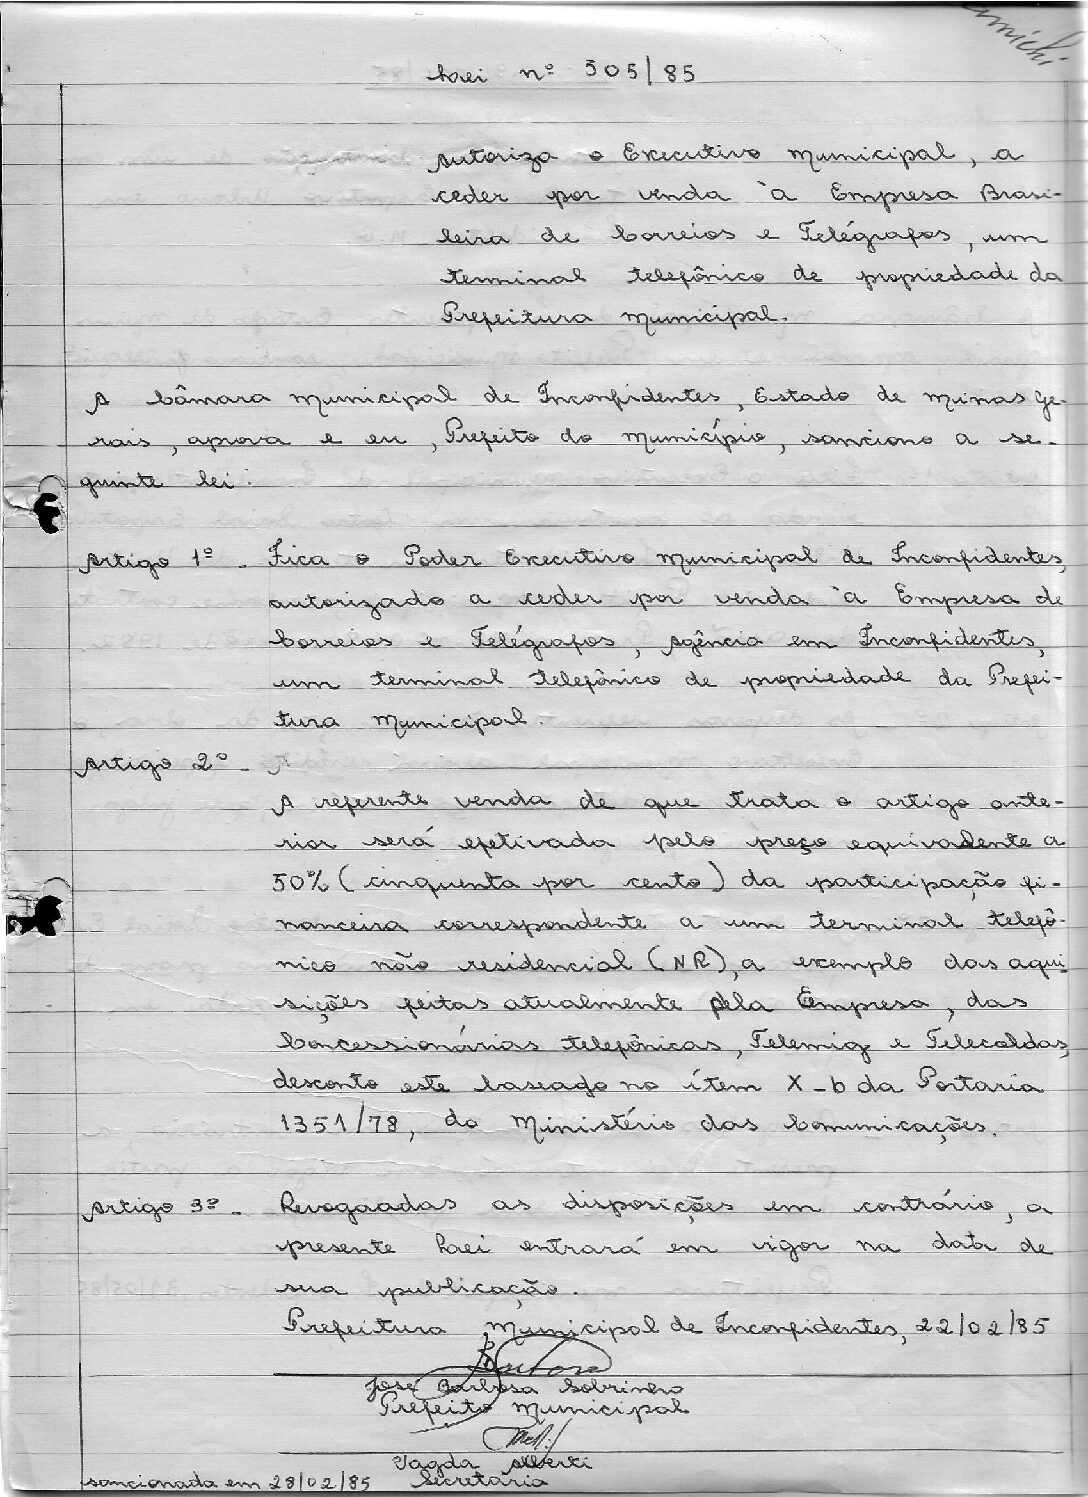 Lei nº 505/85
Autoriza o Executivo Municipal, a
ceder por venda à Empresa Brasi-
leira de Correios e Telégrafos, um
terminal telefônico de propriedade da
Prefeitura Municipal.
A Câmara Municipal de Inconfidentes, Estado de Minas Ge-
rais, aprova e eu, Prefeito do Município, sanciono a se-
guinte lei:
Artigo 1º - Fica o Poder Executivo Municipal de Inconfidentes,
autorizado a ceder por venda à Empresa de
Correios e Telégrafos, Agência em Inconfidentes,
um terminal telefônico de propriedade da Prefei-
tura Municipal.
Artigo 2º -
A referente venda de que trata o artigo ante-
rior será efetivada pelo preço equivalente a
50% (cinquenta por cento) da participação fi-
nanceira correspondente a um terminal telefô-
nico não residencial (NR), a exemplo das aqui-
sições feitas atualmente pela Empresa, das
Concessionárias telefônicas, Telemig e Telecaldas,
desconto este baseado no ítem X-b da Portaria
1351/78, do Ministério das Comunicações.
Artigo 3º - Revogaadas as disposições em contrário, a
presente Lei entrará em vigor na data de
sua publicação.
Prefeitura Municipal de Inconfidentes, 22/02/85
José Barbosa Sobrinho
Prefeito Municipal
Vagda Alberti
Secretária
sancionada em 28/02/85